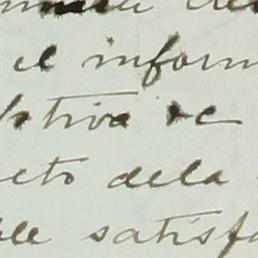 el inform
lativa de
eto dela
ble satisfa